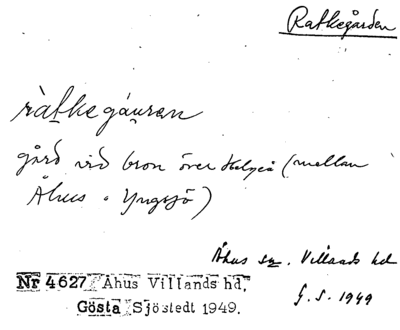 Ratkegården
ràtkegáuran
gård vid bron över Helgeå (mellan
Åhus o Yngsjö)
Åhus sn. Villands hd
Nr 4627 Åhus Villands hd.
Gösta Sjöstedt 1949.
G. S. 1949